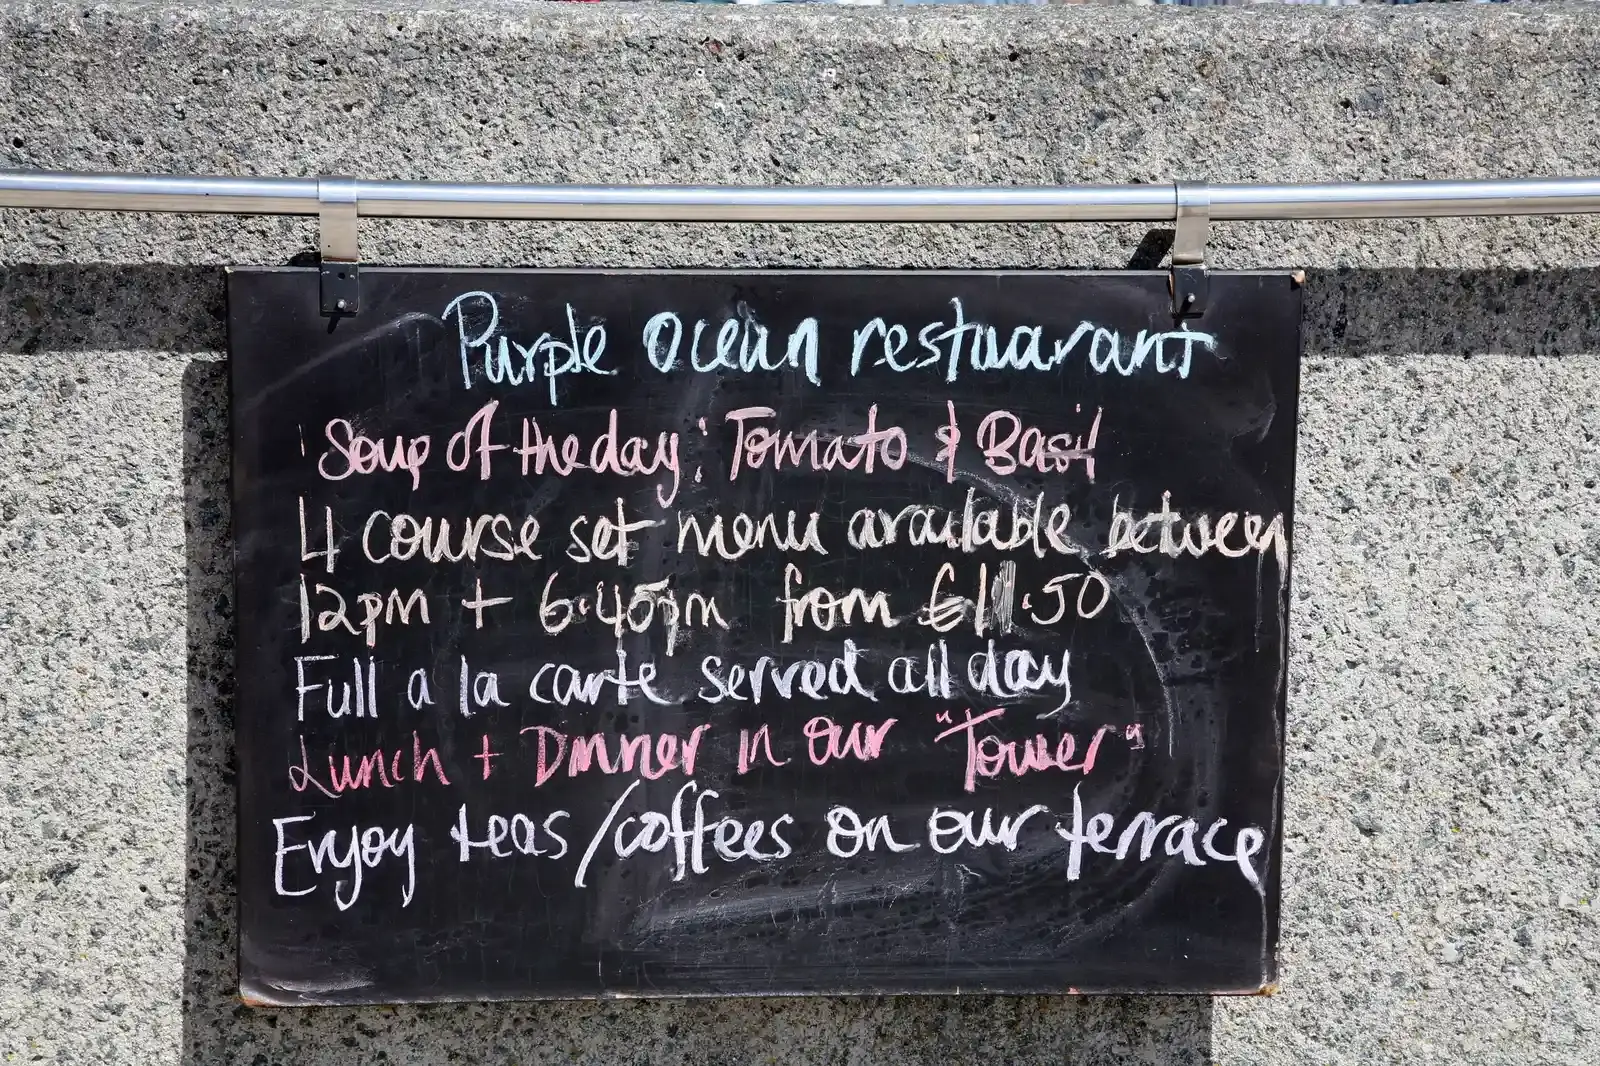 Purple ocean restuarant
Soup of the day: Tomato & Basil
4 course set menu available between
12pm + 6.45pm from
Full a la carte served all day
Lunch + Dinner in our "Tower"
Enjoy teas/coffees on our terrace